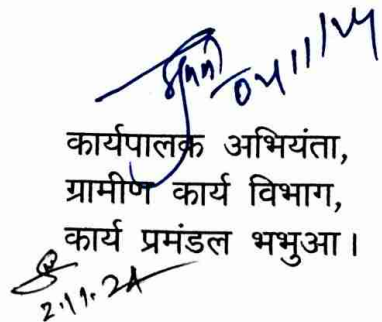 04/11/24
कार्यपालक अभियंता,
ग्रामीण कार्य विभाग,
कार्य प्रमंडल भभुआ।
2.11.24